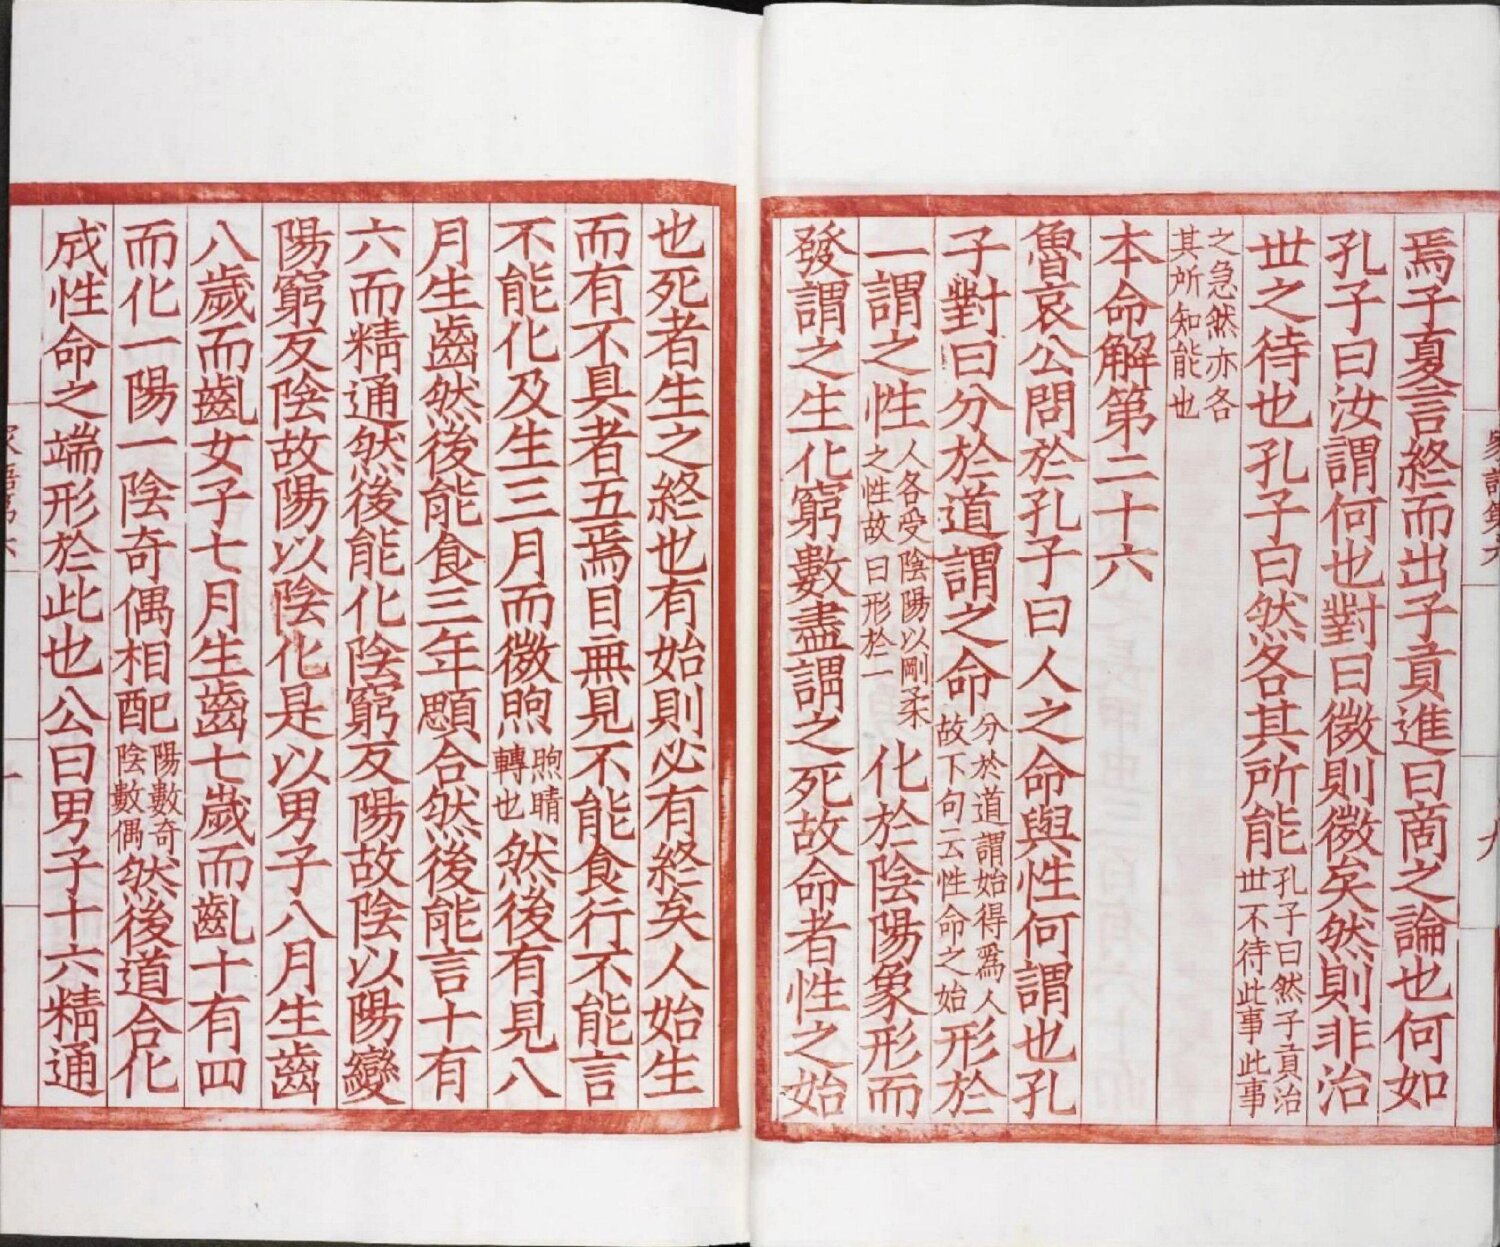 焉子夏言終而出子貢進曰商之論也何如
孔子曰汝謂何也對曰微則微矣然則非治
世之待也孔子曰然各其所能孔子曰然子貢治世不待此事此事
之急然亦各其所知能也
本命解第二十六
魯哀公問於孔子曰人之命與性何謂也孔
子對曰分於道謂之命分於道謂始得爲人故下句云性命之始形於
一謂之性人各受陰陽以剛柔之性故曰形於一化於陰陽象形而
發謂之生化窮數盡謂之死故命者性之始
也死者生之終也有始則必有終矣人始生
而有不具者五焉目無見不能食行不能言
不能化及生三月而微煦煦睛轉也然後有見八
月生齒然後能食三年顋合然後能言十有
六而精通然後能化陰窮反陽故陰以陽變
陽窮反陰故陽以陰化是以男子八月生齒
八歲而齔女子七月生齒七歲而齔十有四
而化一陽一陰奇偶相配陽數奇陰數偶然後道合化
成性命之端形於此也公曰男子十六精通
家語第六
九